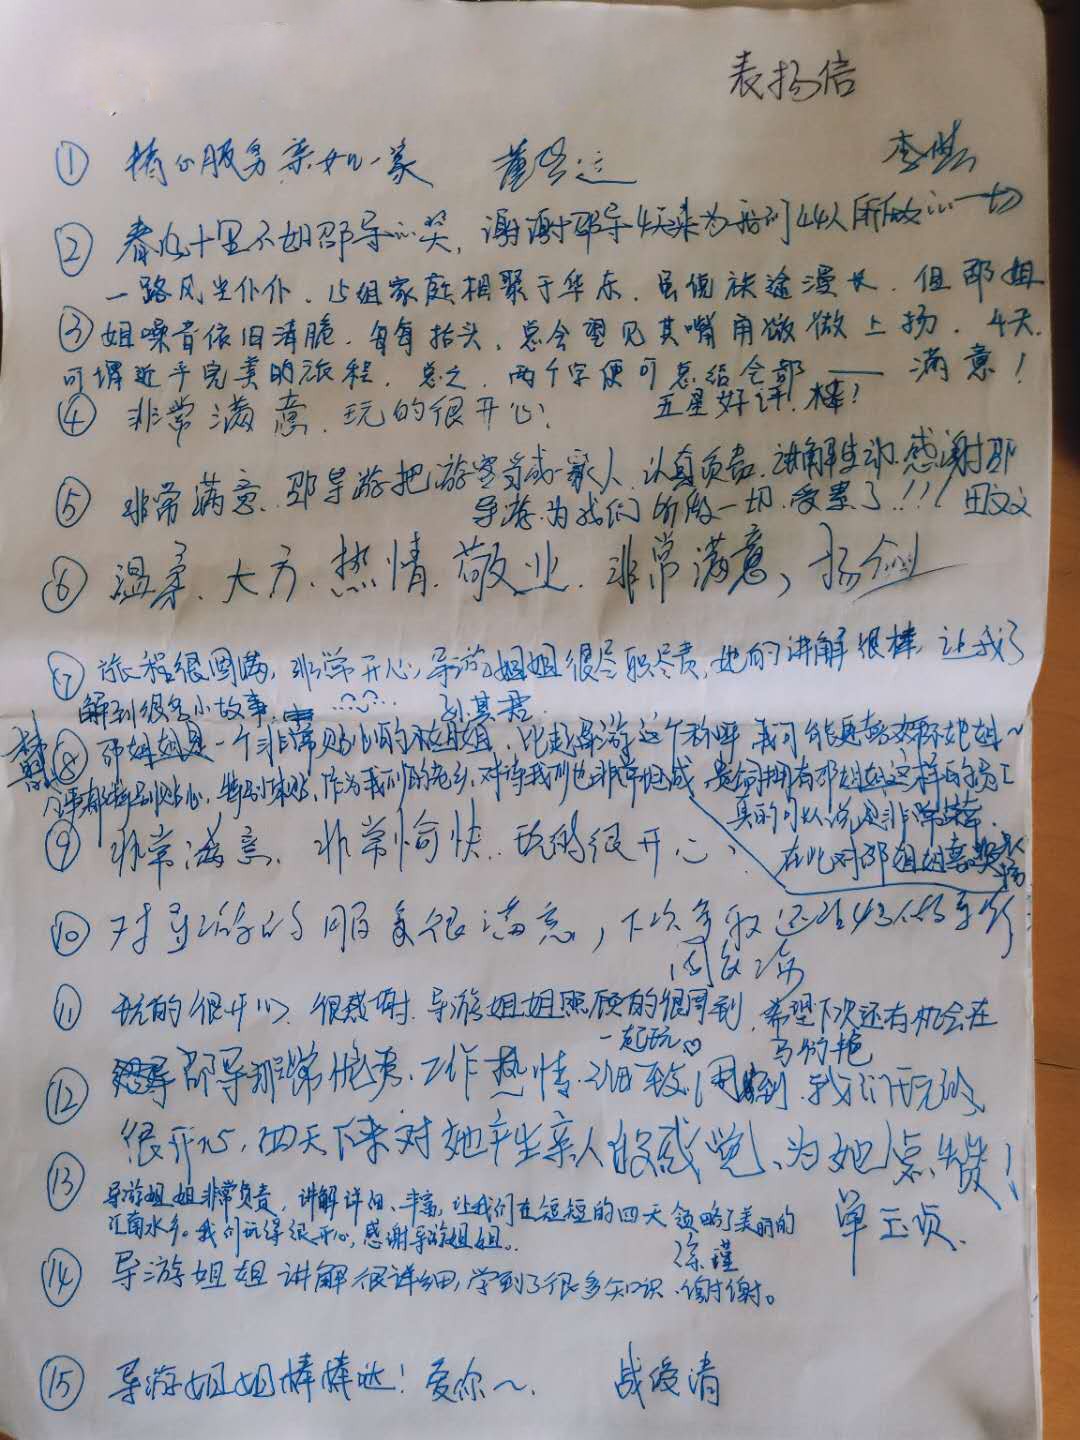 表扬信
① 精心服务亲如一家
② 春风十里不如邵导的笑，谢谢邵导4天来为我们44人所做的一切
③ 一路风尘仆仆，15组家庭相聚于华东，虽说旅途漫长，但邵姐
姐嗓音依旧清脆，每每抬头，总会望见其嘴角微微上扬，4天，
可谓近乎完美的旅程，总之，两个字便可总结全部——满意！
④ 非常满意，玩的很开心，五星好评，棒！
⑤ 非常满意，邵导游把游客当成一家人，认真负责，讲解生动，感谢邵
导游为我们所做一切，受累了！！！ 田文文
⑥ 温柔、大方、热情、敬业、非常满意，
⑦ 旅程很圆满，非常开心，导游姐姐很尽职尽责，她的讲解很棒，让我了
解到很多小故事，
⑧ 邵姐姐是一个非常贴心的姐姐，比起导游这个称呼我可能更喜欢称她姐～
特别贴心，作为我们的老乡，对待我们也非常
真的可以说是非常
在此对邵姐姐
⑨ 非常满意，非常愉快，玩的很开心，
⑩ 对导游的服务很满意，下次争取还
⑪ 玩的很开心，很感谢导游姐姐照顾的很周到，希望下次还有机会在
一起玩♡
⑫ 邵导非常优秀，工作热情、细致、周到，我们玩的
很开心，四天下来对她产生亲人般感觉、为她点赞！
⑬ 导游姐姐非常负责，讲解详细、丰富，让我们在短短的四天领略了美丽的
江南水乡。我们玩得很开心，感谢导游姐姐。
单玉贞
徐瑾
⑭ 导游姐姐讲解很详细，学到了很多知识，谢谢。
⑮ 导游姐姐棒棒哒！爱你～、 战俊清